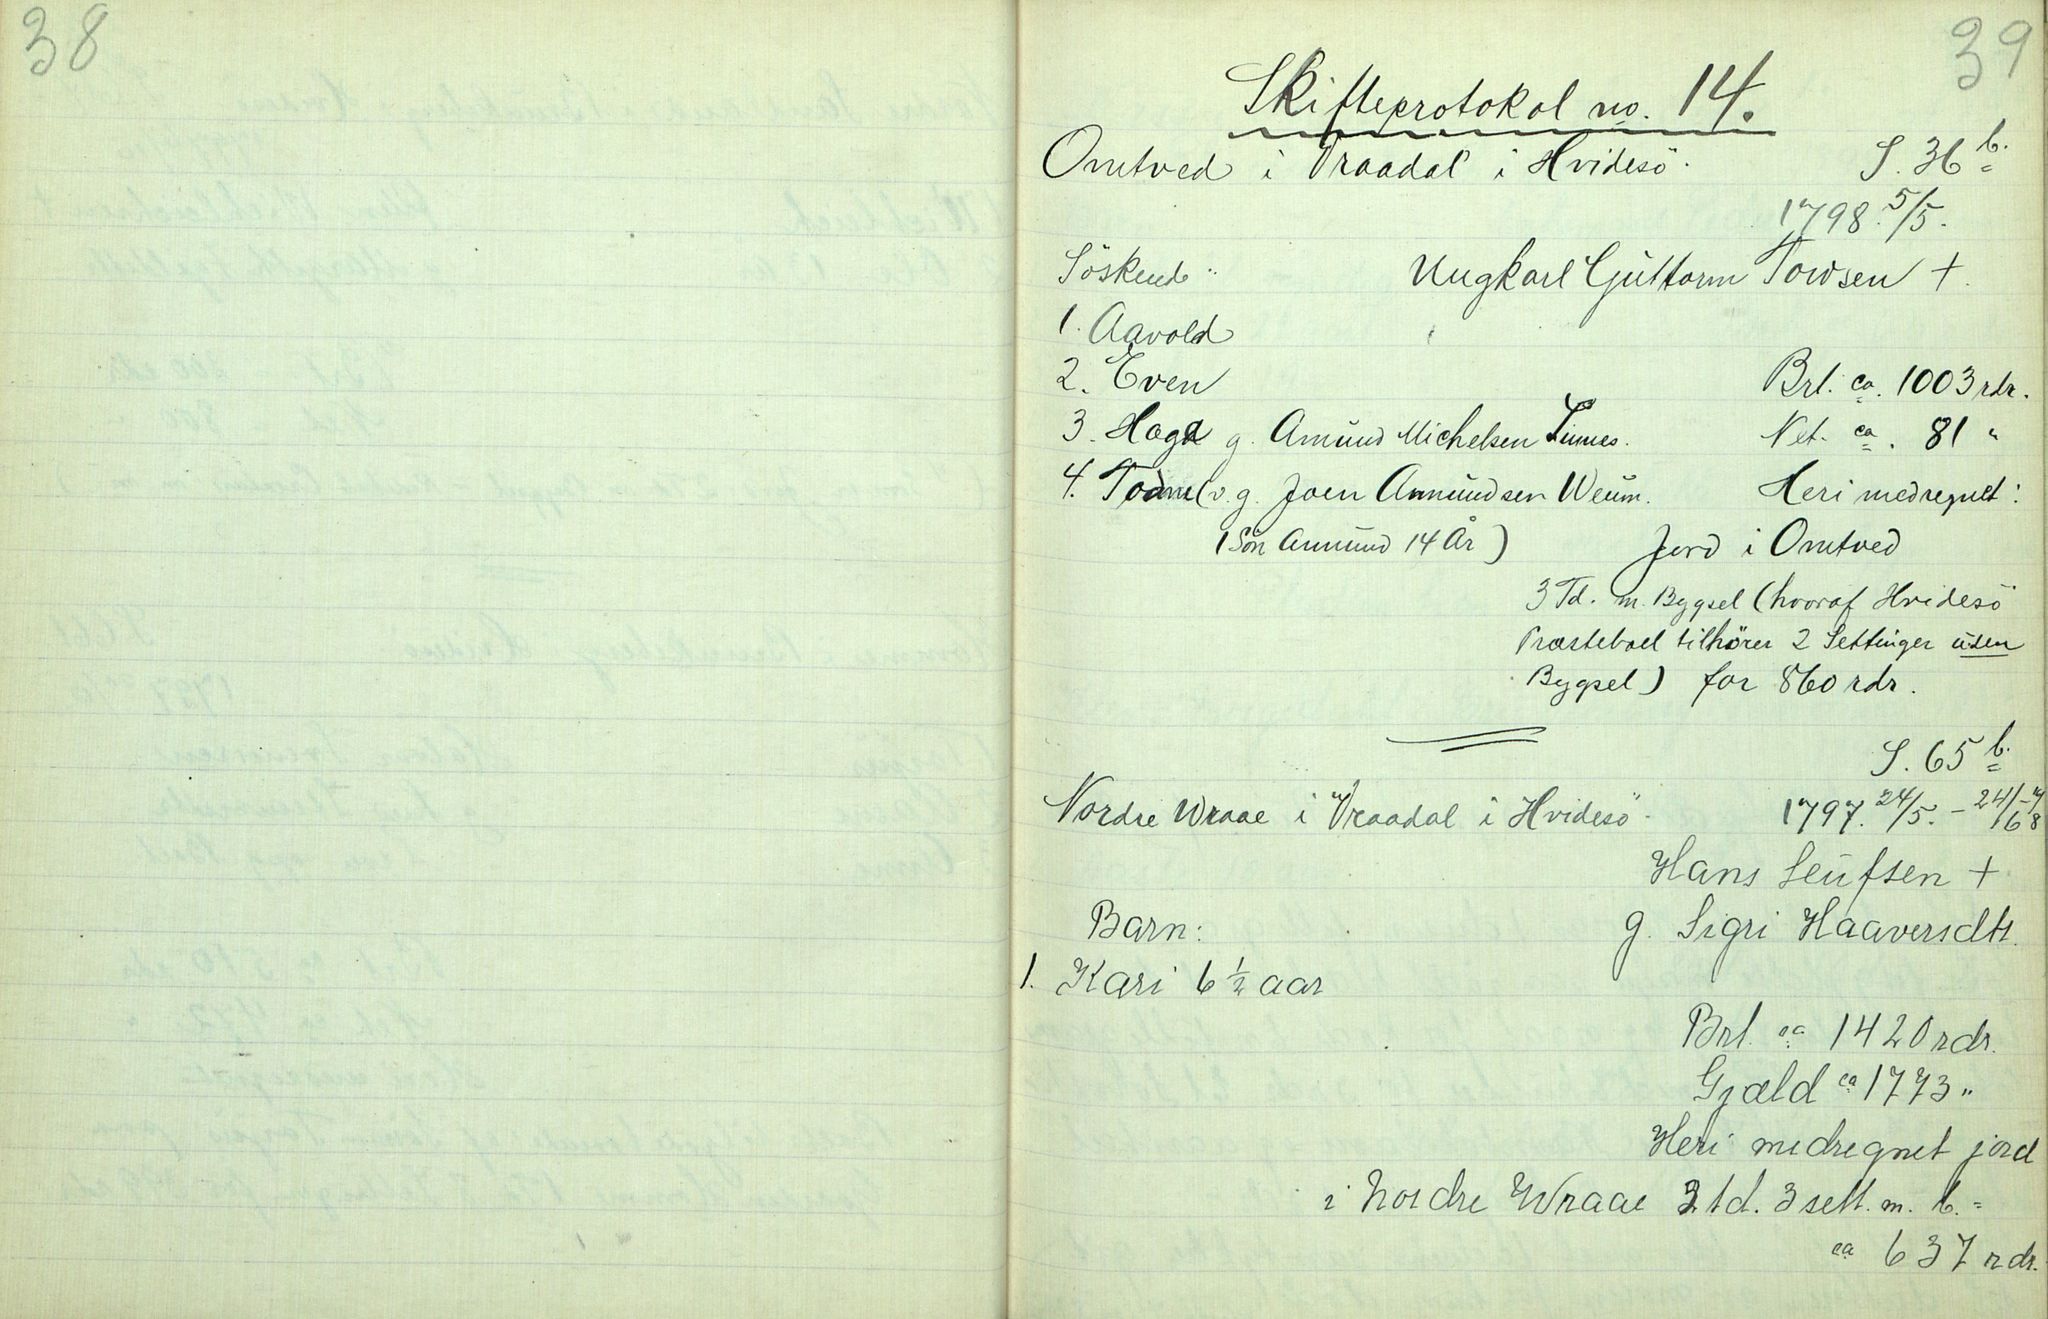 38
39
Skifteprotokol no. 14.
Omtved i Vraadal i Hvidesö. S. 36 b.
1798. 5/5.
Söskende: Ungkarl Guttorm Tovsen +.
1. Aavold
2. Even Brt. ca. 1003 rdr.
3. Haga g. Amund Michelsen Limes. Net. ca. 81 "
4. Tone (v. g. Joen Ammundsen Weum. Heri medregnet:
(Sön Ammund 14 År) Jord i Omtved
3 Td. m. Bygsel (hvoraf Hvidesö
Præstebol tilhörer 2 Settinger uden
Bygsel) for 860 rdr.
S. 65 b.
Nordre Wraae i Vraadal i Hvidesö. 1797. 24/5. - 24/6 -98
Hans Leufsen +
Barn: g. Sigri Haaversdtr.
1. Kari 6 1/2 aar
Brt. ca 1420 rdr.
Gjæld ca 1773 "
Heri medregnet jord
i Nordre Wraae 2 td. 3 sett. m. b. =
ca 637 rdr.